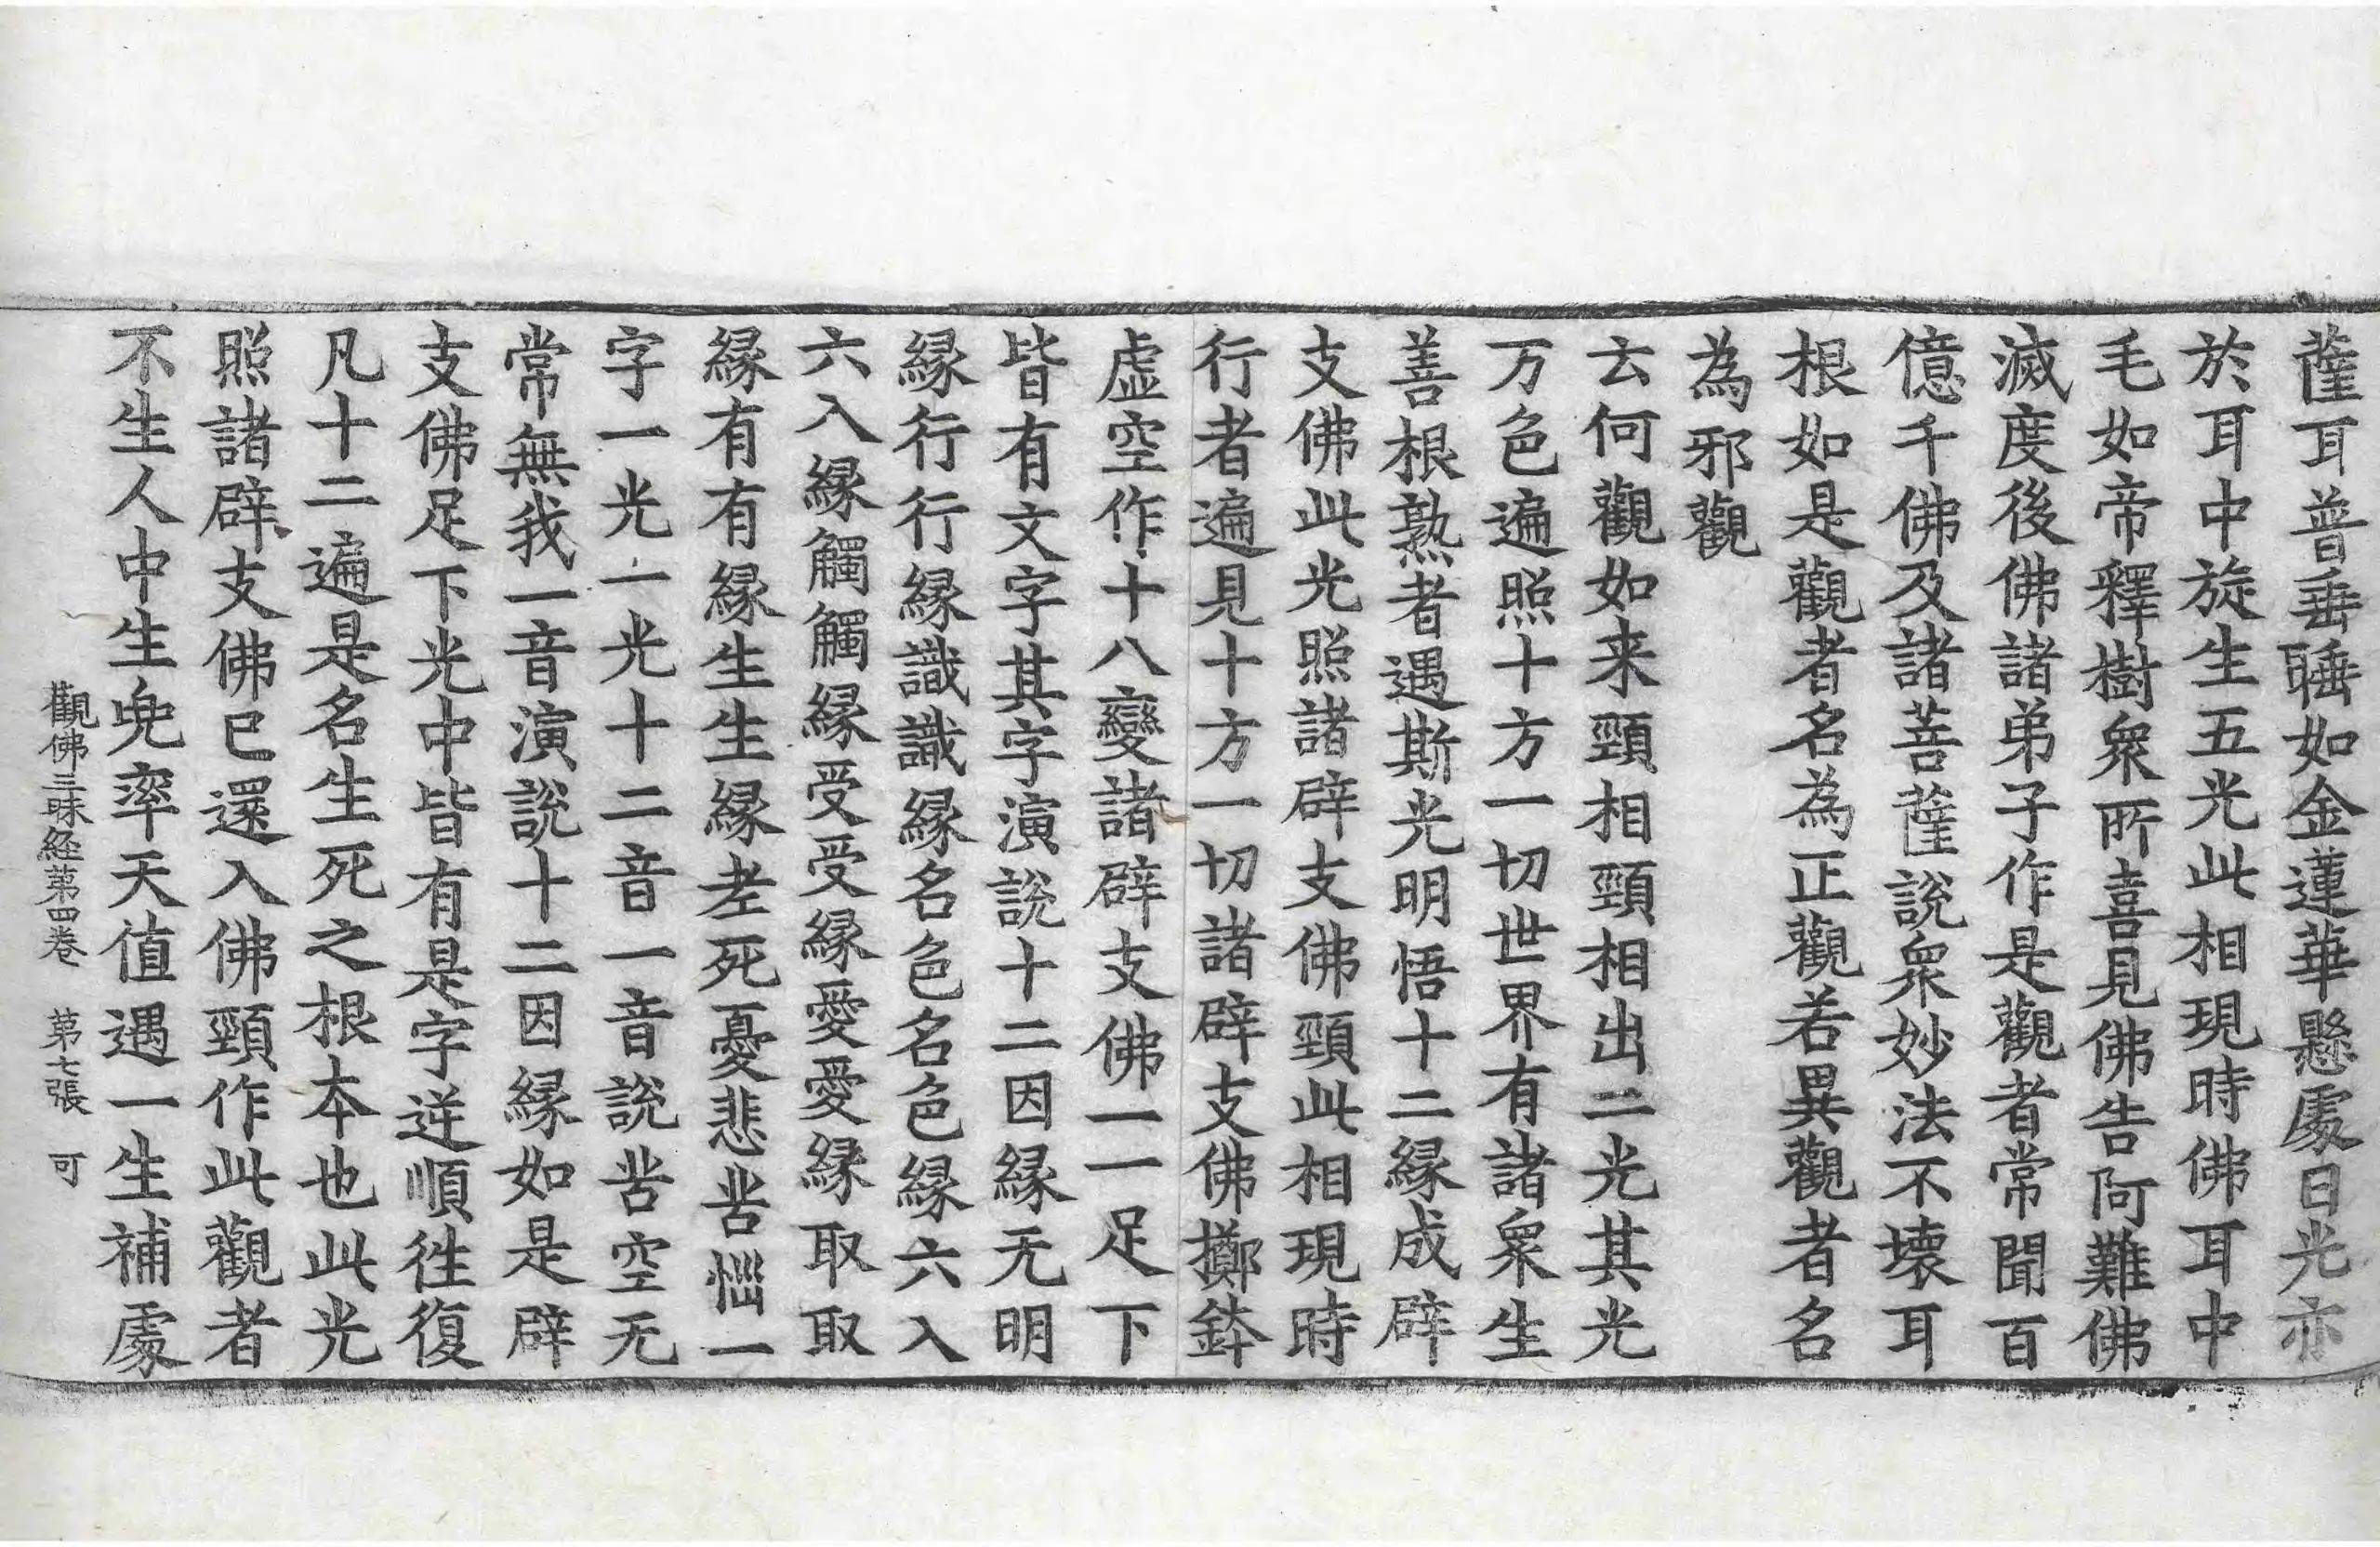 薩耳普垂睡如金蓮華懸處日光亦
於耳中旋生五光此相現時佛耳中
毛如帝釋樹衆所喜見佛告阿難佛
滅度後佛諸弟子作是觀者常聞百
億千佛及諸菩薩說衆妙法不壞耳
根如是觀者名為正觀若異觀者名
為邪觀
云何觀如来頸相頸相出二光其光
万色遍照十方一切世界有諸衆生
善根熟者遇斯光明悟十二緣成辟
支佛此光照諸辟支佛頸此相現時
行者遍見十方一切諸辟支佛擲鉢
虛空作十八變諸辟支佛一一足下
皆有文字其字演說十二因緣无明
緣行行緣識識緣名色名色緣六入
六入緣觸觸緣受受緣愛愛緣取取
緣有有緣生生緣老死憂悲苦惱一
字一光一光十二音一音說苦空无
常無我一音演說十二因緣如是辟
支佛足下光中皆有是字逆順往復
凡十二遍是名生死之根本也此光
照諸辟支佛已還入佛頸作此觀者
不生人中生兜率天值遇一生補處
觀佛三昧経第四卷 第七張 可